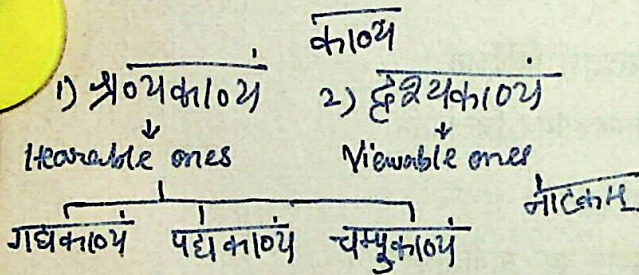 काव्य
1) श्रव्यकाव्यं 2) दृश्यकाव्यं
Hearable ones Viewable ones
नाटकम्
गद्यकाव्यं पद्यकाव्यं चम्पुकाव्यं